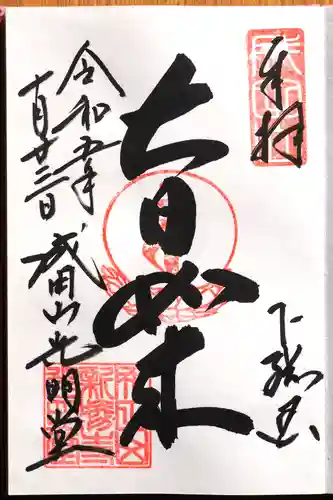 奉拝
下総国
大日如来
令和五年
十月廿三日
成田山光明堂
新勝寺